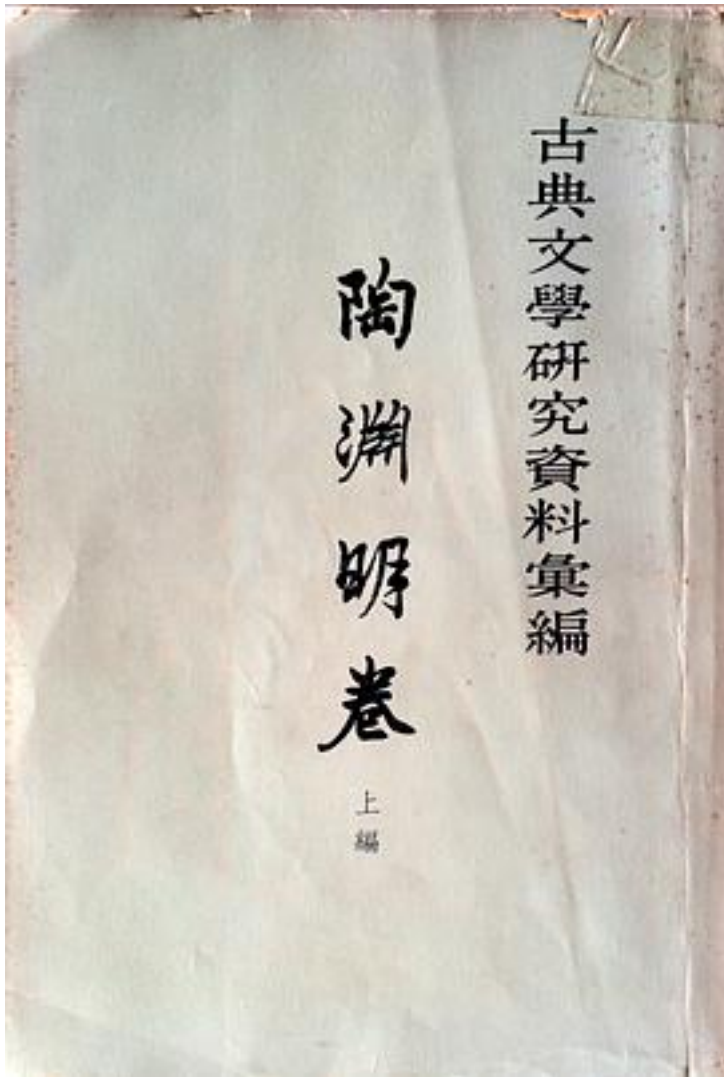 古典文學研究資料彙編
陶淵明卷
上編